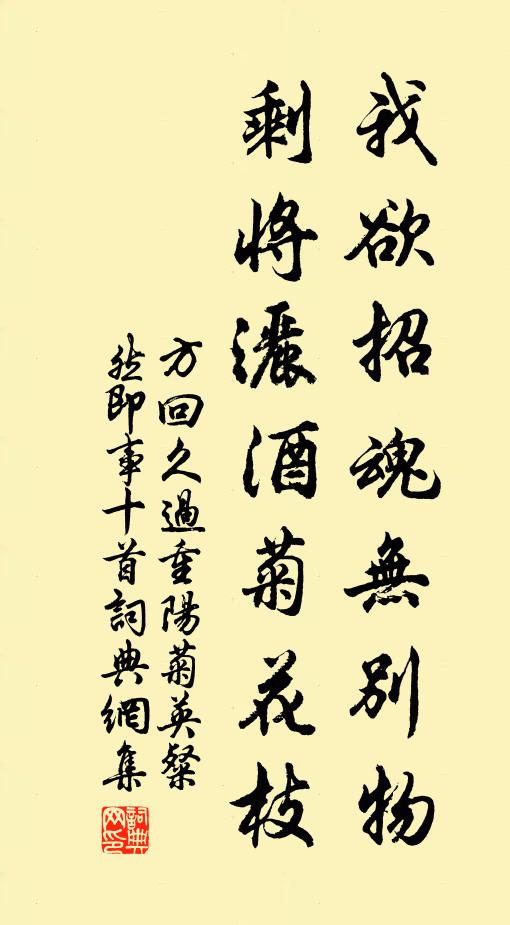 我欲招魂無別物
剩將灑酒菊花枝
方回久過重陽菊英粲
然即事十首詞典網集
詞典網印